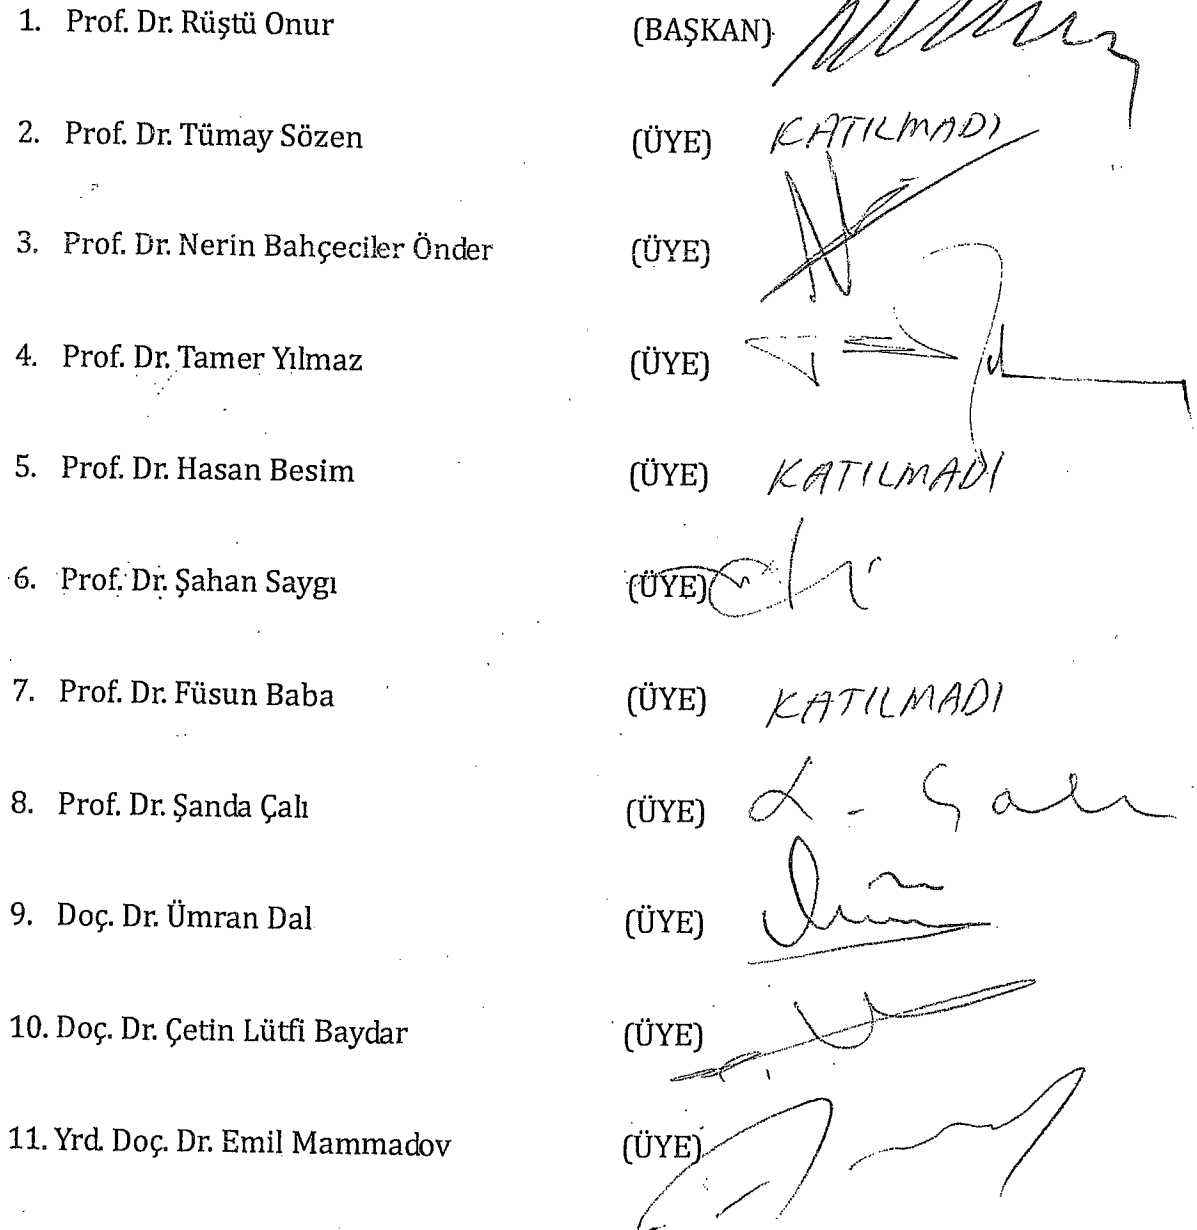 1. Prof. Dr. Rüştü Onur (BAŞKAN)
2. Prof. Dr. Tümay Sözen (ÜYE) KATILMADI
3. Prof. Dr. Nerin Bahçeciler Önder (ÜYE)
4. Prof. Dr. Tamer Yılmaz (ÜYE)
5. Prof. Dr. Hasan Besim (ÜYE) KATILMADI
6. Prof. Dr. Şahan Saygı (ÜYE)
7. Prof. Dr. Füsun Baba (ÜYE) KATILMADI
8. Prof. Dr. Şanda Çalı (ÜYE) Çalı
9. Doç. Dr. Ümran Dal (ÜYE)
10. Doç. Dr. Çetin Lütfi Baydar (ÜYE)
11. Yrd. Doç. Dr. Emil Mammadov (ÜYE)